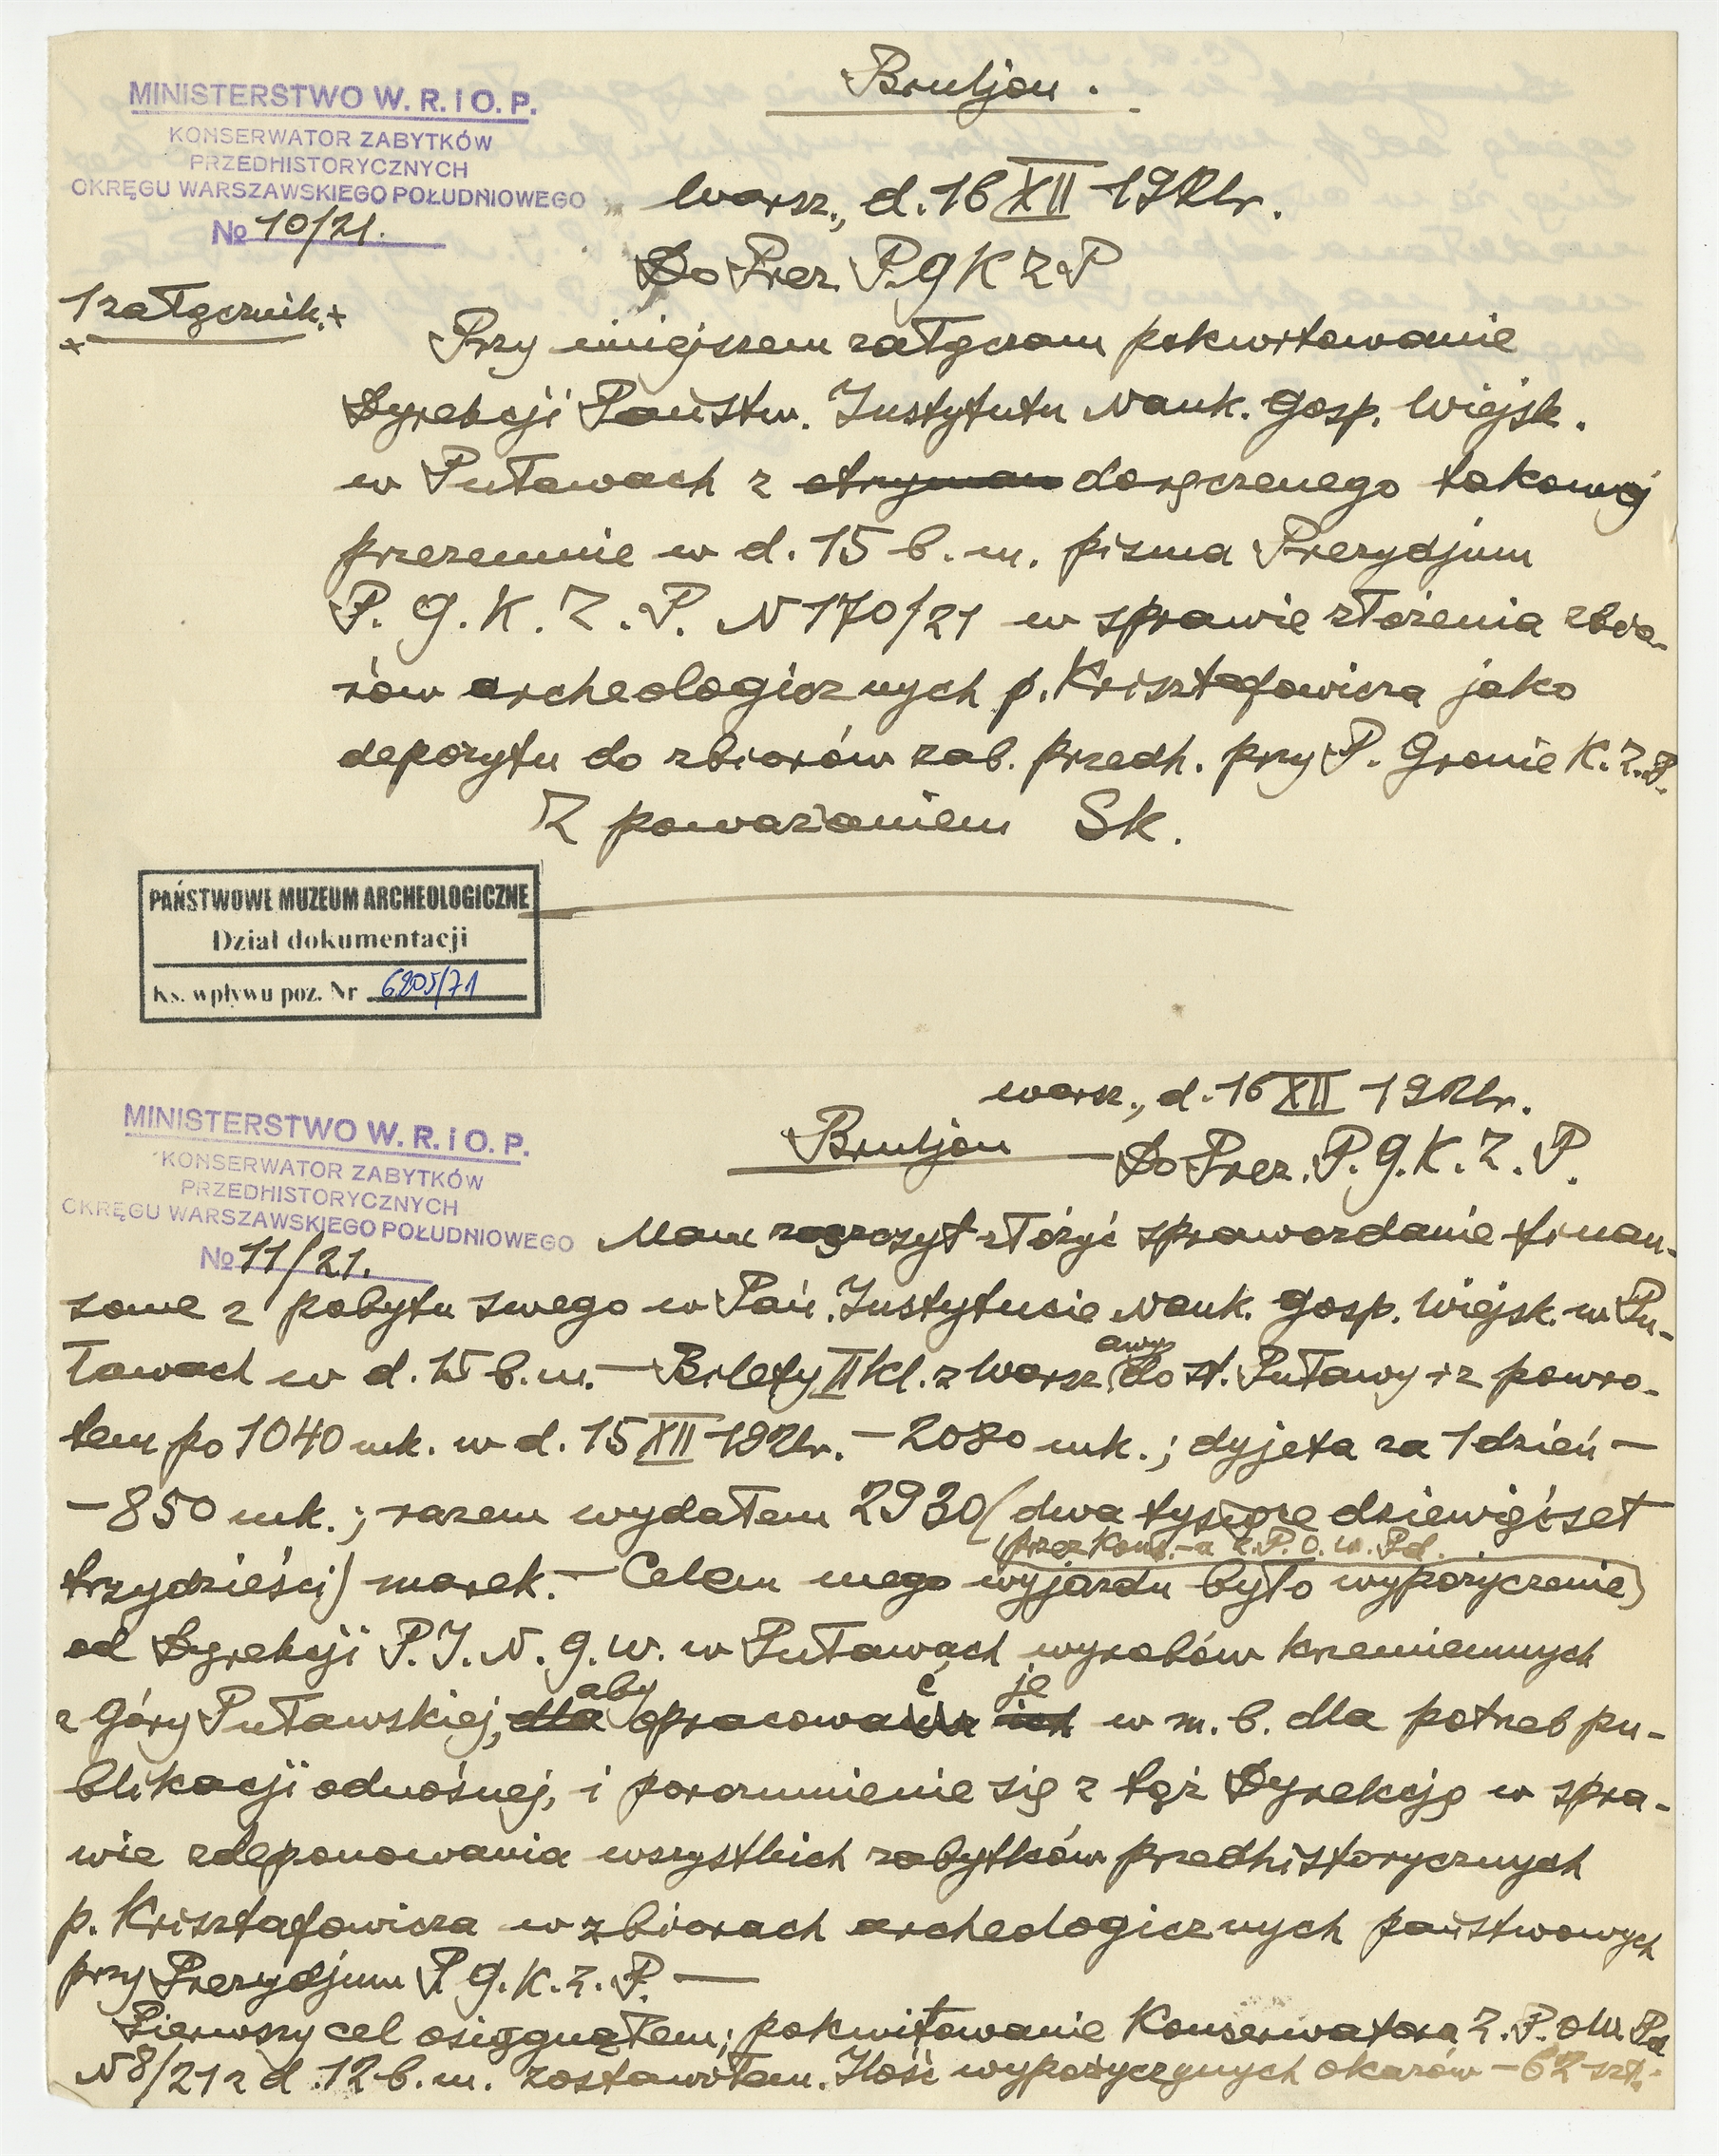 Bruljon.
MINISTERSTWO W. R. i O. P.
KONSERWATOR ZABYTKÓW
PRZEDHISTORYCZNYCH
OKRĘGU WARSZAWSKIEGO POŁUDNIOWEGO
№ 10/21.
Warsz., d. 16 XII 1921r.
Do Prez. P.G.K.Z.P
1 załącznik.+
+
Przy niniejszem załączam pokwitowanie
Dyrekcji Państw. Instytutu Nauk. Gosp. Wiejsk.
w Puławach z otrzyman doręczonego takowej
przezemnie w d. 15 b. m. pisma Prezydjum
P. G. K. Z. P. N 170/21 w sprawie złożenia zbio-
rów archeologicznych p. Krisztafowicza jako
depozytu do zbiorów zab. przedh. przy P. Gronie K. Z. P.
Z poważaniem Sk.
PAŃSTWOWE MUZEUM ARCHEOLOGICZNE
Dział dokumentacji
Ks. wpływu poz. Nr 6205/71
Warsz., d. 16 XII 1921r.
Bruljon — Do Prez. P. G. K. Z. P.
MINISTERSTWO W. R. i O. P.
KONSERWATOR ZABYTKÓW
PRZEDHISTORYCZNYCH
OKRĘGU WARSZAWSKIEGO POŁUDNIOWEGO
№ 11/21.
Mam zaszczyt złożyć sprawozdanie finan-
sowe z pobytu swego w Pań. Instytucie Nauk. Gosp. Wiejsk. w Pu-
ławach w d. 15 b. m. — Bilety II kl. z Warszawy do st. Puławy i z powro-
tem po 1040 mk. w d. 15 XII 1921r. — 2080 mk.; dyjeta za 1 dzień —
— 850 mk.; razem wydałem 2930 (dwa tysiące dziewięćset
(przez Kons.-a Z. P. O. W. Pd.
trzydzieści) marek. — Celem mego wyjazdu było wypożyczenie)
od Dyrekcji P. I. N. G. W. w Puławach wyrobów krzemiennych
aby ć je
z Góry Puławskiej, dla opracowania ich w m. b. dla potrzeb pu-
blikacji odnośnej, i porozumienie się z tąż Dyrekcją w spra-
wie zdeponowania wszystkich zabytków przedhistorycznych
p. Krisztafowicza w zbiorach archeologicznych państwowych
przy Prezydjum P. G. K. Z. P. —
Pierwszy cel osiągnąłem; pokwitowanie Konserwatora Z. P. O. W. Pd
N 8/21 z d. 12 b. m. zostawiłem. Ilość wypożyczonych okazów — 62 szt.